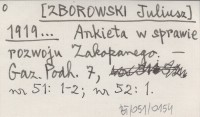 o [ZBOROWSKI Juliusz]
1919... Ankieta w sprawie
rozwoju Zakopanego. —
Gaz. Podh. 7,
nr 51: 1-2; nr 52: 1.